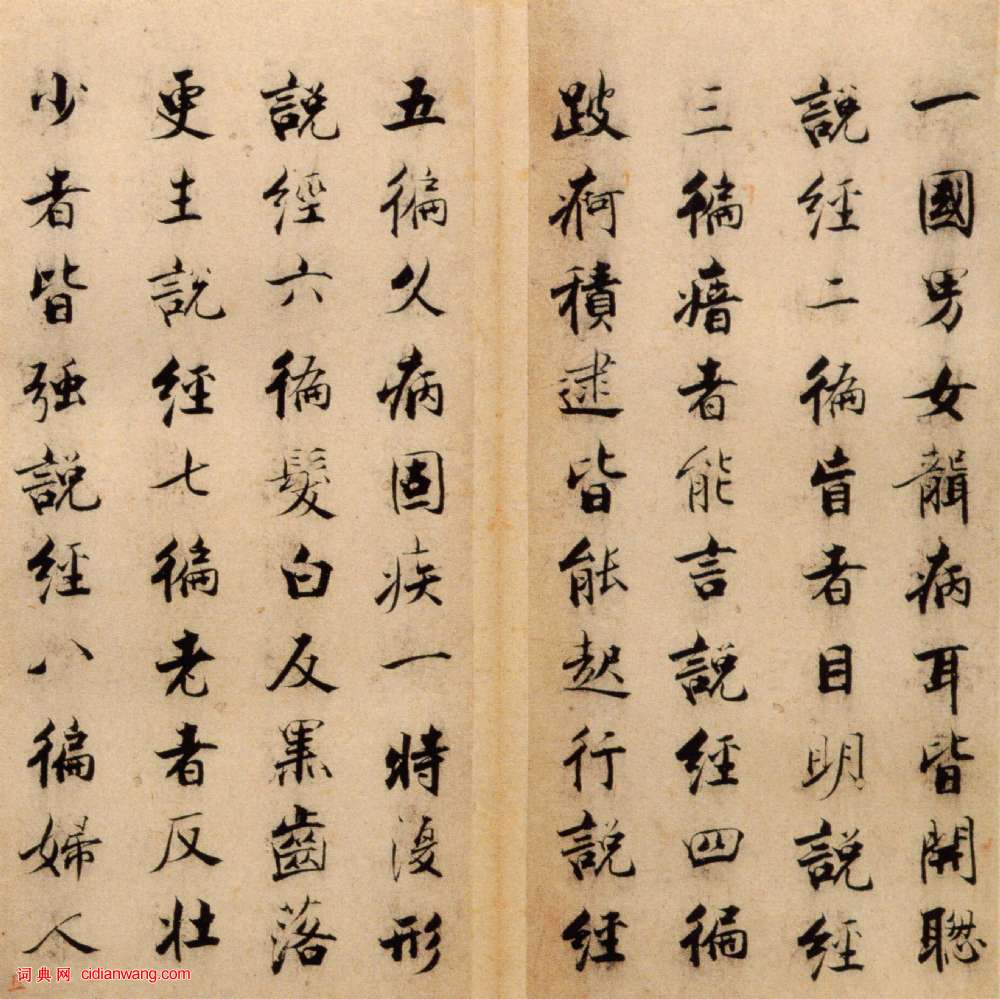 一國男女聾病耳皆開聰
說經二徧盲者目明說經
三徧瘖者能言說經四徧
跛痾積逮皆能起行說經
五徧久病固疾一時復形
說經六徧髮白反黑齒落
更生說經七徧老者反壯
少者皆強說經八徧婦人
词典网 cidianwang.com